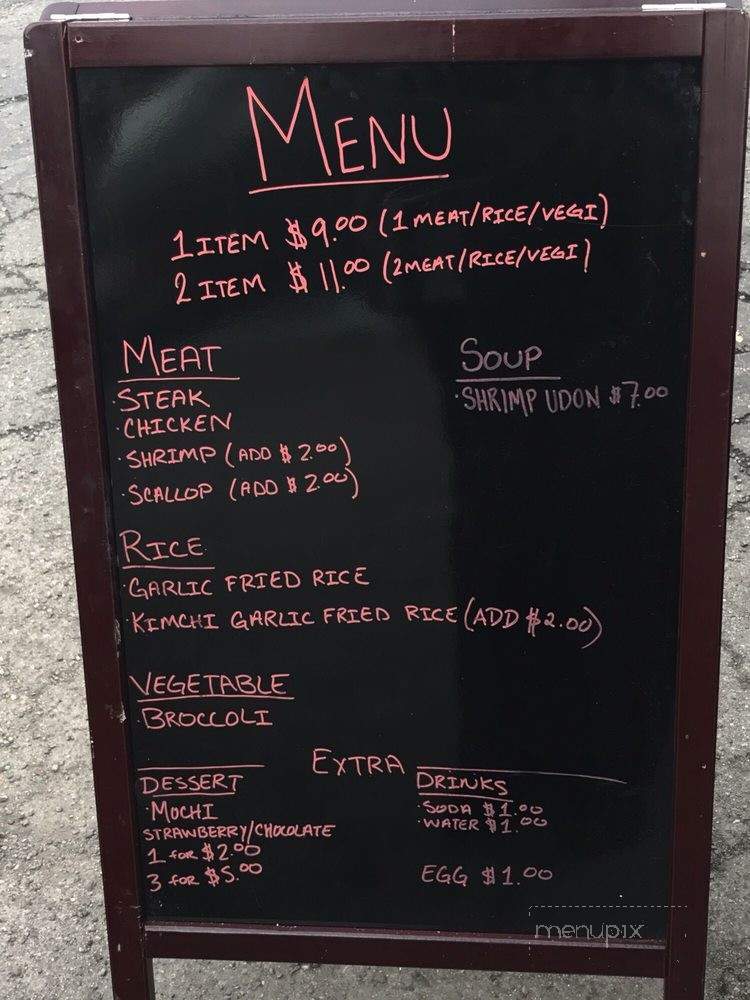 MENU
1 ITEM $9.00 (1 MEAT/RICE/VEGI)
2 ITEM $11.00 (2MEAT/RICE/VEGI)
MEAT
·STEAK
·CHICKEN
·SHRIMP (ADD $2.00)
·SCALLOP (ADD $2.00)
SOUP
·SHRIMP UDON $7.00
RICE
·GARLIC FRIED RICE
·KIMCHI GARLIC FRIED RICE (ADD $2.00)
VEGETABLE
·BROCCOLI
EXTRA
DESSERT
·MOCHI
STRAWBERRY/CHOCOLATE
1 FOR $2.00
3 FOR $5.00
DRINKS
·SODA $1.00
·WATER $1.00
EGG $1.00
menupix